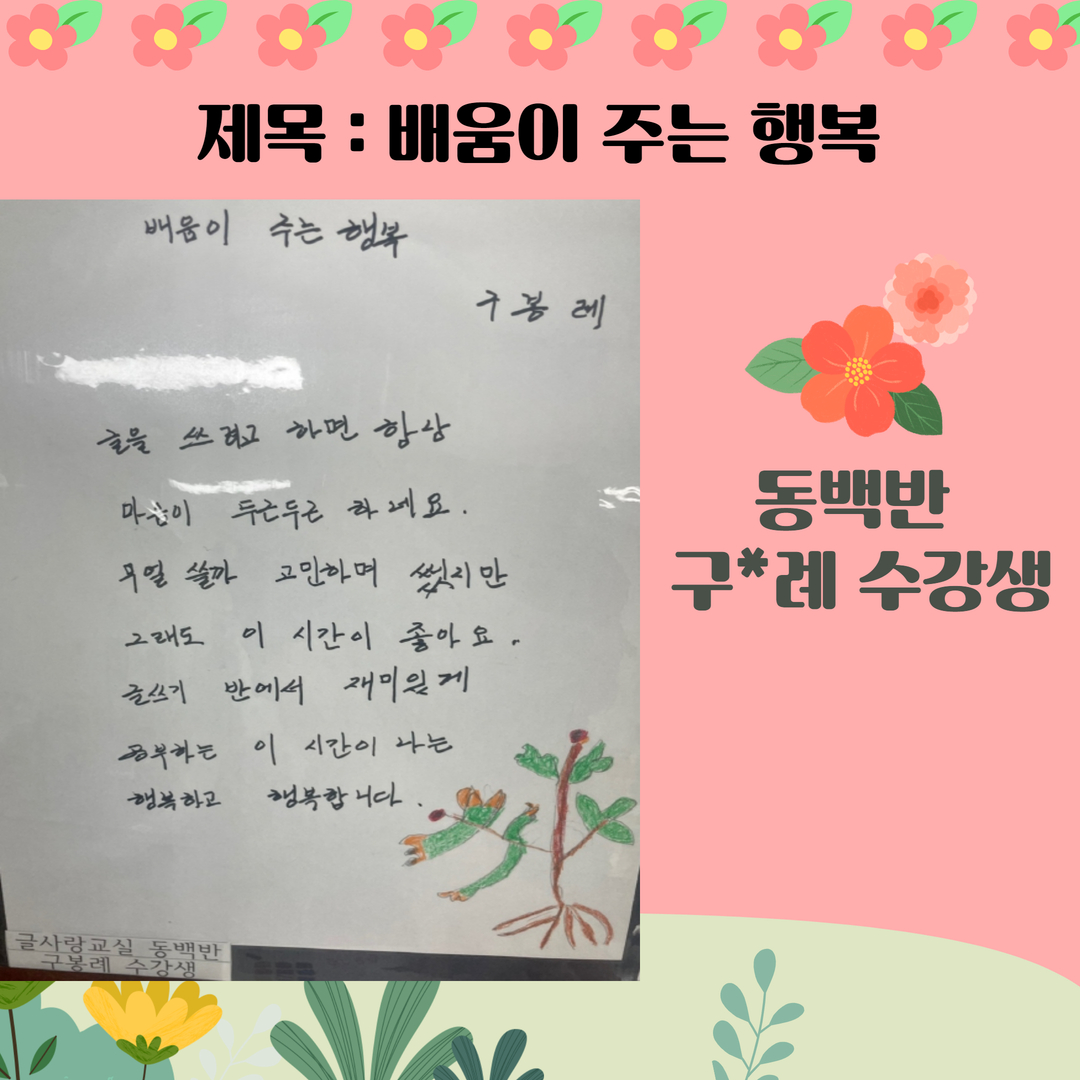 제목 : 배움이 주는 행복
배움이 주는 행복
구봉례
글을 쓰려고 하면 항상
마음이 두근두근 하네요.
무얼 쓸까 고민하며 썼지만
그래도 이 시간이 좋아요.
글쓰기 반에서 재미있게
공부하는 이 시간이 나는
행복하고 행복합니다.
글사랑교실 동백반
구봉례 수강생
동백반
구*례 수강생